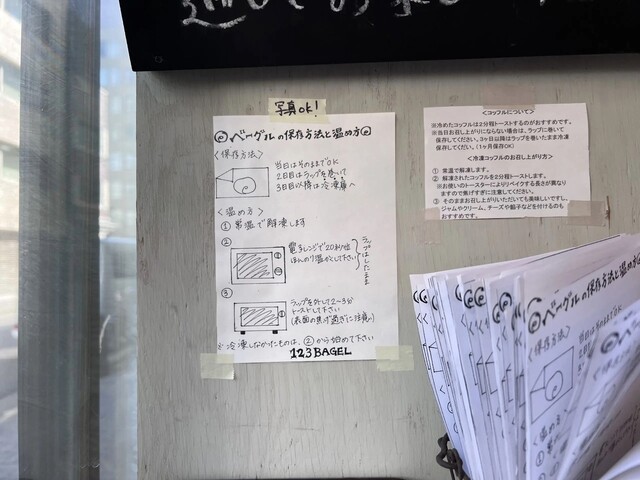 写真OK!
ベーグルの保存方法と温め方
〈保存方法〉
当日はそのままでOK
2日目はラップを巻いて
3日目以降は冷凍庫へ
〈温め方〉
① 常温で解凍します
②
電子レンジで20秒位
ほんのり温かくして下さい
ラップはしたまま
③
ラップを外して2〜3分
トーストして下さい
(表面の焦げ過ぎに注意)
※冷凍しなかったものは、②から始めて下さい
123BAGEL
<コッフルについて>
※冷めたコッフルは2分程トーストするのがおすすめです。
※当日お召し上がりにならない場合は、ラップに巻いて
保存してください。3ヶ日以降はラップを巻いたまま冷凍
保存してください。(1ヶ月保存OK)
<冷凍コッフルのお召し上がり方>
① 常温で解凍します。
② 解凍されたコッフルを2分程トーストします。
※お使いのトースターによりリベイクする長さが異なり
ますので焦げすぎに注意してください。
③ そのままお召し上がりいただいても美味しいですし、
ジャムやクリーム、チーズや餡子などを付けるのも
おすすめです。
ベーグルの保存方法と温め方
〈保存方法〉
〈温め方〉